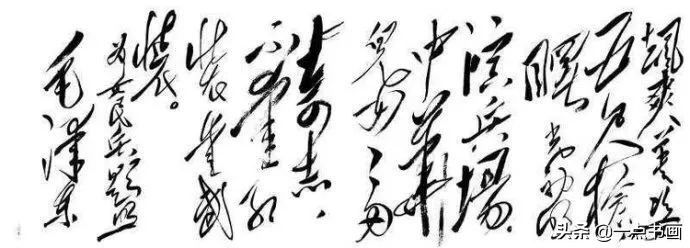 飒爽英姿
五尺枪
曙光初照
演兵场。
中华
儿女多
奇志,
不爱红
装爱武
装。
为女民兵题照
毛泽东
头条 @一点书画